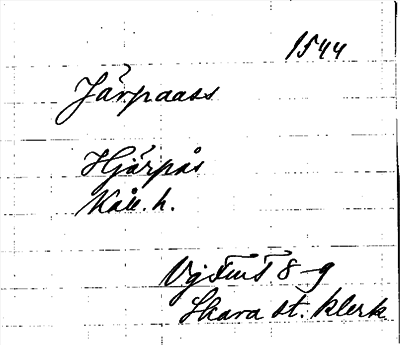 1544
Järpaass
Hjärpås
Kåll. h.
8-9
Skara st. klerk